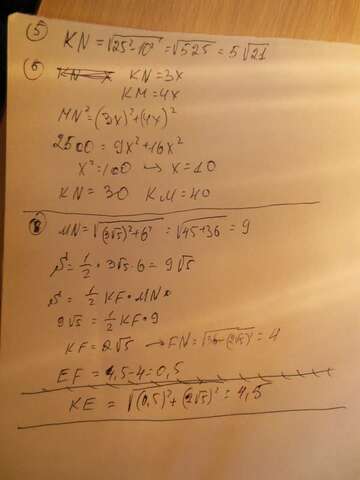 5 KN = √25²-10² = √525 = 5√21
6 KN = 3x
KM = 4x
MN² = (3x)² + (4x)²
2500 = 9x² + 16x²
x² = 100 → x = 10
KN = 30 KM = 40
8 MN = √(3√5)²+6² = √45+36 = 9
S = 1/2 · 3√5 · 6 = 9√5
S = 1/2 KF · MN
9√5 = 1/2 KF · 9
KF = 2√5 → FN = √36-(2√5)² = 4
EF = 4,5 - 4 = 0,5
KE = √(0,5)² + (2√5)² = 4,5